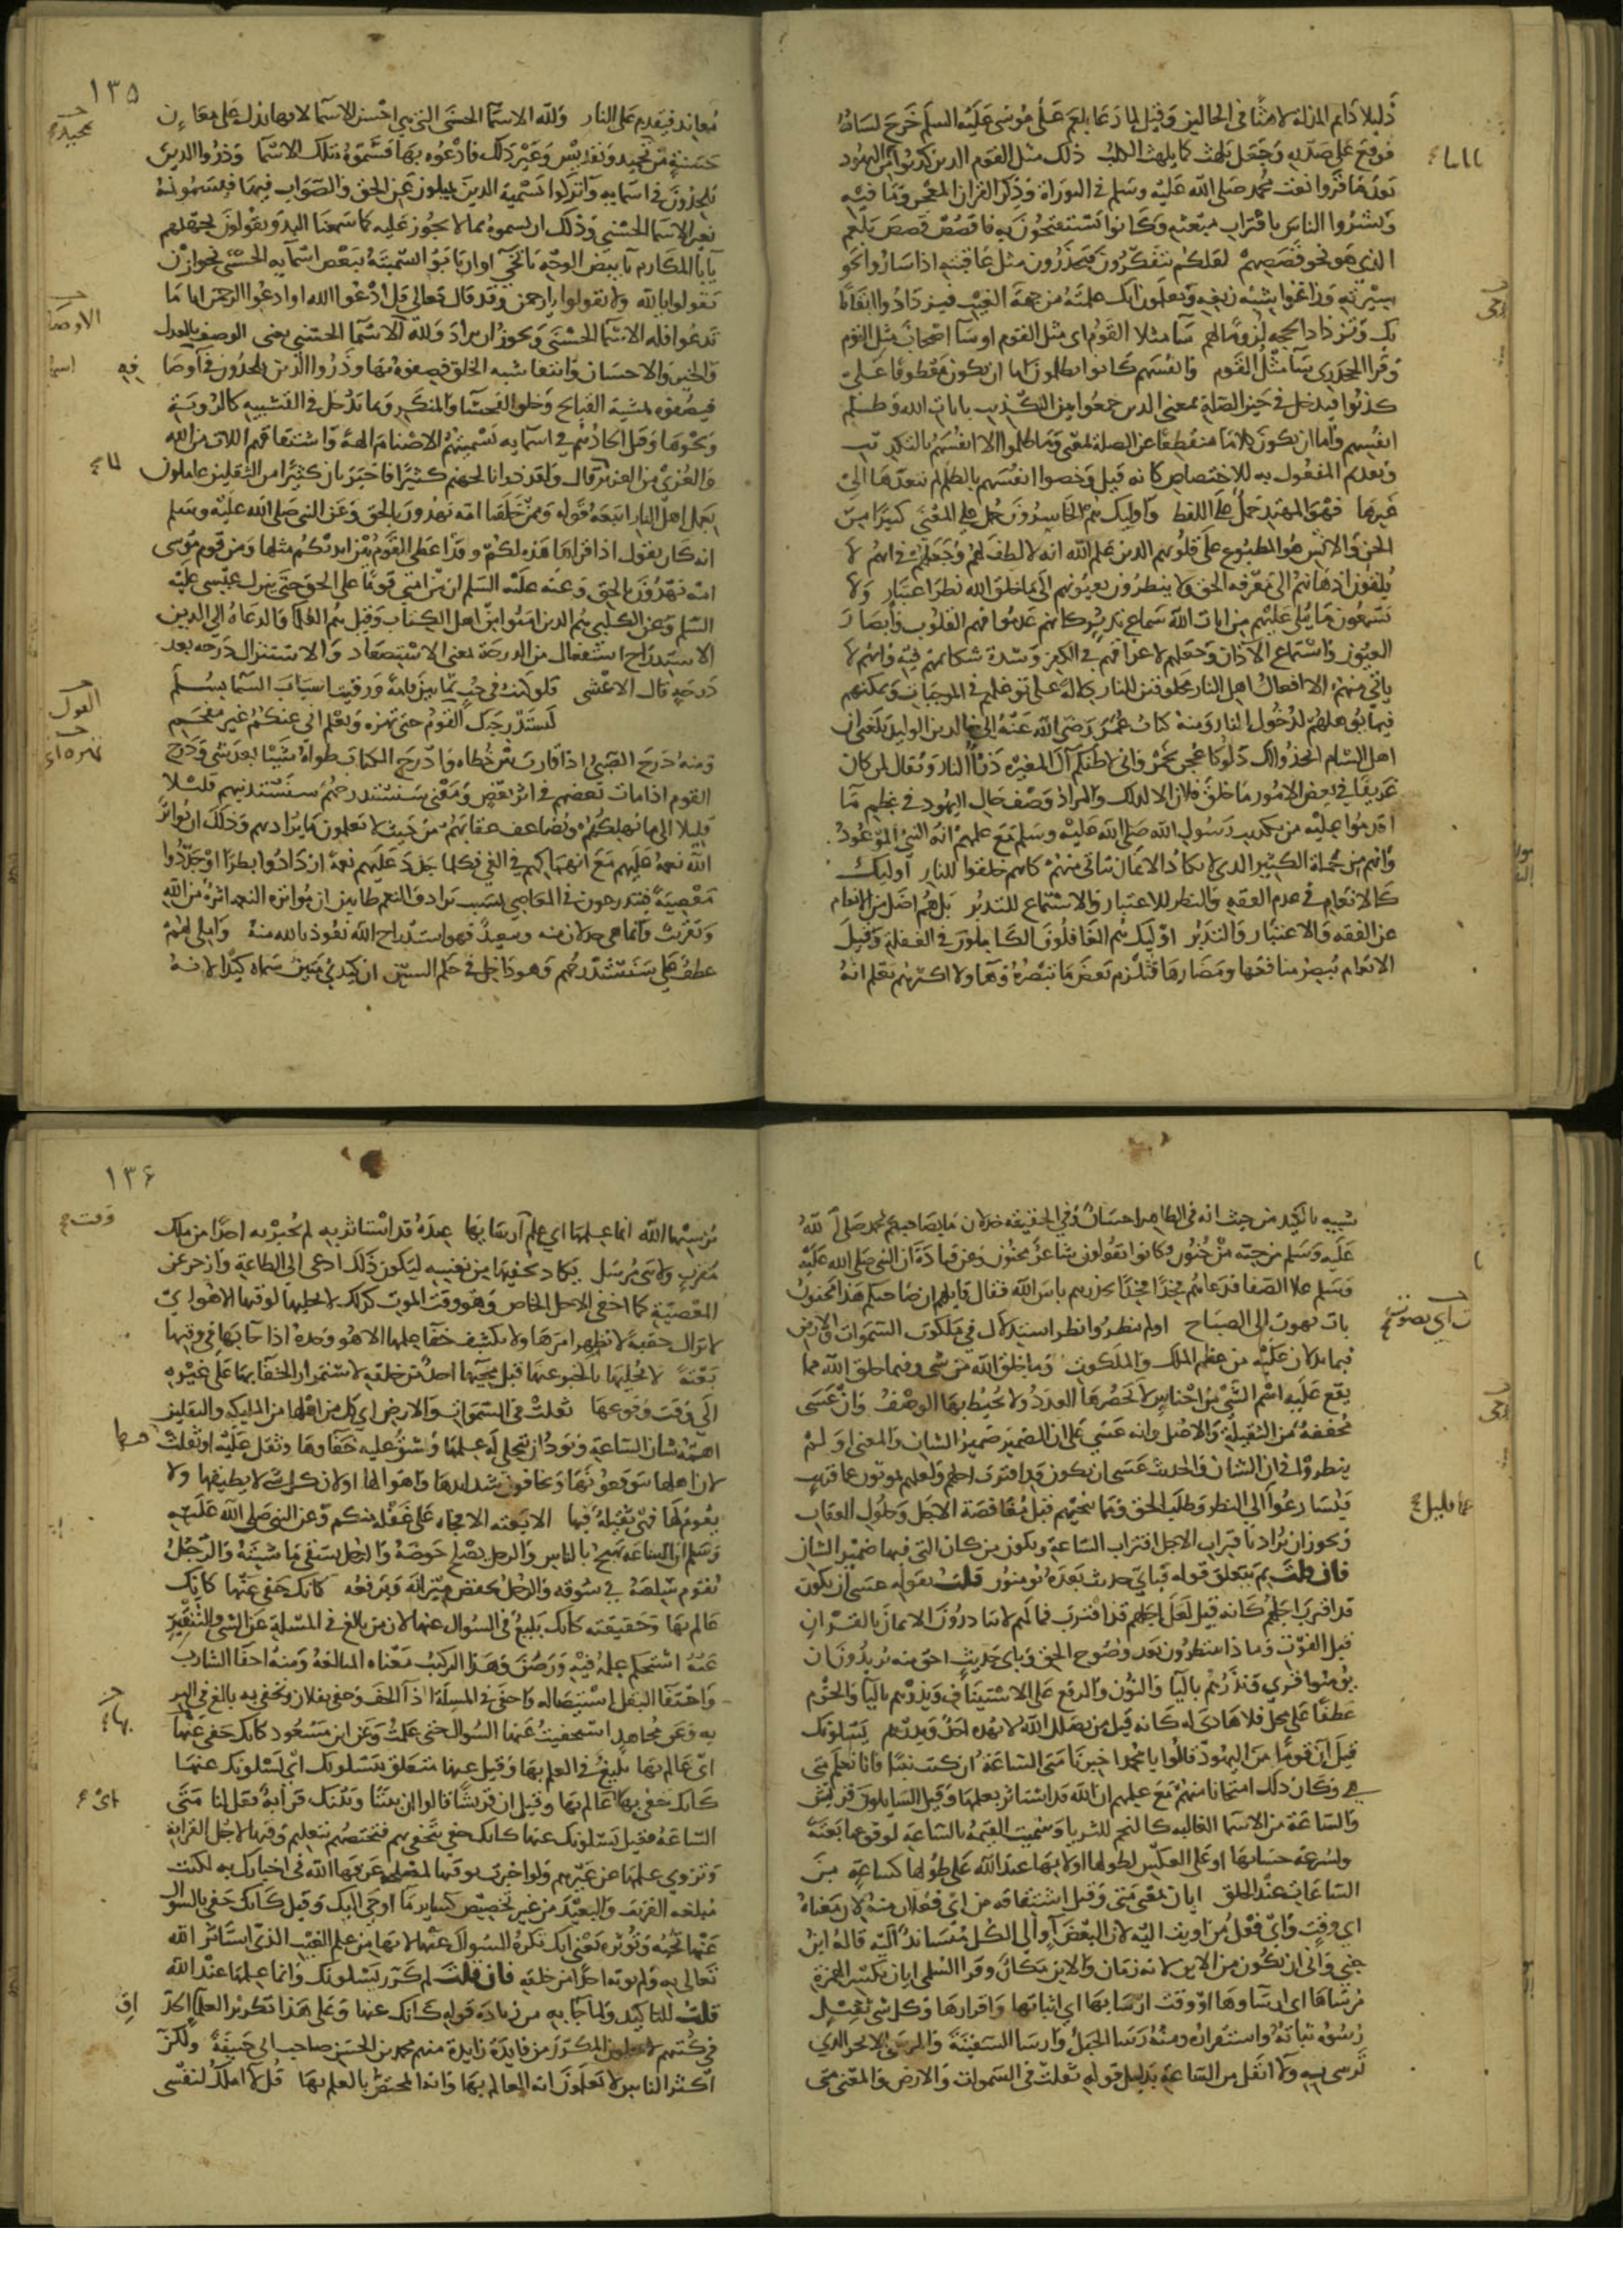 ذليلا دائم الذلة لاهثا في الحالين وقيل لما دعا بلعم على موسى عليه السلم خرج لسانه
فوقع على صدره وجعل يلهث كما يلهث الكلب ذلك مثل القوم الذين كذبوا من اليهود
بعد ما قرؤا نعت محمد صلى الله عليه وسلم في التوراة وذكر القران المعجز وما فيه
وبشروا الناس باقتراب مبعثه وكانوا يستفتحون به فاقصص قصص بلعم
الذي هو نحو قصصهم لعلهم يتفكرون فيحذرون مثل عاقبته اذا ساروا نحو
سيرته وزاغوا شبه زيغه ويعلمون انك علمته من جهة الغيب فيزدادوا ايقانا
بك وتزداد الحجة لزوما لهم سآ مثلا القوم اي مثل القوم او سآ اصحاب مثل القوم
وقرا الجحدري سآ مثل القوم وانفسهم كانوا يظلمون اما ان يكون معطوفا على
كذبوا فيدخل في حيز الصلة بمعنى الذين جمعوا بين التكذيب بايات الله وظلم
انفسهم واما ان يكون كلاما منقطعا عن الصلة بمعنى وما ظلموا الا انفسهم بالتكذيب
وتقديم المفعول به للاختصاص كانه قيل وخصوا انفسهم بالظلم لم يتعدها الى
غيرها فهو المهتدي حمل على اللفظ واوليك هم الخاسرون حمل على المعنى كثيرا من
الجن والانس هم المطبوع على قلوبهم الذين علم الله انه لا لطف لهم وجعلهم في انهم لا
يلقون اذهانهم الى معرفة الحق ولا ينظرون بعيونهم الى ما خلق الله نظر اعتبار ولا
يسمعون ما يتلى عليهم من ايات الله سماع تدبر كانهم عدموا فهم القلوب وابصار
العيون واستماع الاذان وجعلهم لاعراقهم في الكفر وشدة شكائمهم فيه وانهم لا
ياتي منهم الا افعال اهل النار مخلوقين للنار دلالة على توغلهم في الموجبات وتمكنهم
فيما يؤهلهم لدخول النار ومنه كتاب عمر رضي الله عنه الى خالد بن الوليد بلغني ان
اهل الشام اتخذوا لك دلوكا عجن بخمر واني لاظنكم آل المغيرة ذرء النار ويقال لمن كان
عريقا في بعض الامور ما خلق فلان الا لذلك والمراد وصف حال اليهود في عظم ما
اقدموا عليه من تكذيب رسول الله صلى الله عليه وسلم مع علمهم انه النبي الموعود
وانهم من جملة الكثير الذي لا يكاد الايمان يتاتى منهم كانهم خلقوا للنار اوليك
كالانعام في عدم الفقه والنظر للاعتبار والاستماع للتدبر بل هم اضل من الانعام
عن الفقه والاعتبار والتدبر اوليك هم الغافلون الكاملون في الغفلة وقيل
الانعام تبصر منافعها ومضارها فتلزم بعض ما تبصره وهاولا اكثرهم يعلم انه
١٣٥
معاند فيقدم على النار ولله الاسمآ الحسنى التي هي احسن الاسمآ لانها تدل على معان
حسنة من تمجيد وتقديس وغير ذلك فادعوه بها فسموه بتلك الاسمآ وذروا الذين
يلحدون في اسمايه واتركوا تسمية الذين يميلون عن الحق والصواب فيها فيسمونه
بغير الاسمآ الحسنى وذلك ان يسموه بما لا يجوز عليه كما سمعنا البدو يقولون بجهلهم
يا ابا المكارم يا ابيض الوجه يا نخي او ان يابوا تسميته ببعض اسمآيه الحسنى نحو ان
يقولوا يا الله ولا يقولوا يا رحمن وقد قال تعالى قل ادعوا الله او ادعوا الرحمن ايا ما
تدعوا فله الاسمآ الحسنى ويجوز ان يراد ولله الاسمآ الحسنى يعني الوصف بالعدل
والخير والاحسان وانتفا شبه الخلق فصفوه بها وذروا الذين يلحدون في اوصافه
فيصفونه بمشية القبايح وخلق الفحشآ والمنكر وبما يدخل في التشبيه كالرؤية
ونحوها وقيل الحادهم في اسمايه تسميتهم الاصنام الهة واشتقاقهم اللات من الله
والعزى من العزيز لما قال ولقد ذرانا لجهنم كثيرا فاخبر بان كثيرا من الثقلين عاملون
بعمل اهل النار اتبعه قوله وممن خلقنا امة يهدون بالحق وعن النبي صلى الله عليه وسلم
انه كان يقول اذا قراها هذه لكم وقد اعطى القوم بين ايديكم مثلها ومن قوم موسى
امة يهدون بالحق وعنه عليه السلم ان من امتي قوما على الحق حتى ينزل عيسى عليه
السلم وعن الكلبي هم الذين امنوا من اهل الكتاب وقيل هم العلمآ والدعاة الى الدين
الاستدراج استفعال من الدرجة بمعنى الاستصعاد او الاستنزال درجة بعد
درجة قال الاعشى فلو كنت في جب ثمانين قامة ورقيت اسباب السمآ بسلم
ليستدرجنك القول حتى تهره وتعلم اني عنكم غير مفحم
ومنه درج الصبي اذا قارب بين خطاه وادرج الكتاب طواه شيئا بعد شيء ودرج
القوم اذا مات بعضهم في اثر بعض ومعنى سنستدرجهم سنستدنيهم قليلا
قليلا الى ما يهلكهم ويضاعف عقابهم من حيث لا يعلمون ما يراد بهم وذلك ان يواتر
الله نعمه عليهم مع انهماكهم في الغي فكلما جدد عليهم نعمة ازدادوا بطرا وجددوا
معصية فيتدرجون في المعاصي بسبب ترادف النعم ظانين ان مواترة النعم اثرة من الله
وتقريب وانما هي خذلان منه وتبعيد فهو استدراج الله نعوذ بالله منه واملي لهم
عطف على سنستدرجهم وهو داخل في حكم السين ان كيدي متين سماه كيدا لانه
شبيه بالكيد من حيث انه في الظاهر احسان وفي الحقيقة خذلان ما بصاحبهم محمد صلى الله
عليه وسلم من جنة من جنون وكانوا يقولون شاعر مجنون وعن قتادة ان النبي صلى الله عليه
وسلم علا الصفا فدعاهم فخذا فخذا يحذرهم باس الله فقال قايلهم ان صاحبكم هذا لمجنون
بات يهوت الى الصباح اولم ينظروا نظر استدلال في ملكوت السموات والارض
فيما تدلان عليه من عظم الملك والملكوت وما خلق الله من شي وفيما خلق الله مما
يقع عليه اسم الشي من اجناس لا يحصرها العدد ولا يحيط بها الوصف وان عسى
مخففة من الثقيلة والاصل وانه عسى على ان الضمير ضمير الشان والمعنى او لم
ينظروا في ان الشان والحديث عسى ان يكون قد اقترب اجلهم ولعلهم يموتون عما قريب
فيسارعوا الى النظر وطلب الحق وما ينجيهم قبل مغافصة الاجل وحلول العقاب
ويجوز ان يراد باقتراب الاجل اقتراب الساعة ويكون من كان التي فيها ضمير الشان
فان قلت بم يتعلق قوله فباي حديث بعده يؤمنون قلت بقوله عسى ان يكون
قد اقترب اجلهم كانه قيل لعل اجلهم قد اقترب فما لهم لا يبادرون الايمان بالقران
قبل الفوت وماذا ينتظرون بعد وضوح الحق وباي حديث احق منه يريدون ان
يؤمنوا قري ونذرهم باليا والنون والرفع على الاستيناف ويذرهم باليا والجزم
عطفا على محل فلا هادي له كانه قيل من يضلل الله لا يهده احد ويذرهم يسلونك
قيل ان قوما من اليهود قالوا يا محمد اخبرنا متى الساعة ان كنت نبيا فانا نعلم متى
هي وكان ذلك امتحانا منهم مع علمهم ان الله قد استاثر بعلمها وقيل السايلون قريش
والساعة من الاسمآ الغالبة كالنجم للثريا وسميت القيمة بالساعة لوقوعها بغتة
ولسرعة حسابها او على العكس لطولها او لانها عند الله على طولها كساعة من
الساعات عند الخلق ايان بمعنى متى وقيل اشتقاقه من اي فعلان منه لان معناه
اي وقت واي فعل من اويت اليه لان البعض آو الى الكل متساند اليه قاله ابن
جني وابى ان يكون من اين لانه زمان واين مكان وقرا السلمي ايان بكسر الهمزة
مرساها ارساوها او وقت ارسايها اي اثباتها واقرارها وكل شي ثقيل
رسوه ثباته واستقراره ومنه رسا الجبل وارسا السفينة والمرسى الانجر الذي
ترسى به ولا اثقل من الساعة بدليل قوله ثقلت في السموات والارض والمعنى متى
١٣٦
يرسيها الله انما علمها اي علم وقت ارسايها عنده قد استاثر به لم يخبر به احدا من ملك
مقرب ولا نبي مرسل يكاد يخفيها من نفسه ليكون ذلك ادعى الى الطاعة وازجر عن
المعصية كما اخفى الاجل الخاص وهو وقت الموت كذلك لا يجليها لوقتها الا هو اي
لا تزال خفية لا يظهر امرها ولا يكشف خفآ علمها الا هو وحده اذا جآ بها في وقتها
بغتة لا يجليها بالخبر عنها قبل مجيها احد من خلقه لاستمرار الخفآ بها على غيره
الى وقت وقوعها ثقلت في السموات والارض اي كل من اهلها من الملايكة والثقلين
اهمه شان الساعة وبوده ان يتجلى له علمها وشق عليه خفاوها وثقل عليه او ثقلت فيها
لان اهلها يتوقعونها ويخافون شدايدها واهوالها او لان كل شي لا يطيقها ولا
يقوم لها فهي ثقيلة فيها الا بغتة الا فجاة على غفلة منكم وعن النبي صلى الله عليه
وسلم ان الساعة تهيج بالناس والرجل يصلح حوضه والرجل يسقي ماشيته والرجل
يقوم سلعته في سوقه والرجل يخفض ميزانه ويرفعه كانك حفي عنها كانك
عالم بها وحقيقته كانك بليغ في السوال عنها لان من بالغ في المسلة عن الشي والتنقير
عنه استحكم علمه فيه ورصن وهذا التركيب معناه المبالغة ومنه احفآ الشارب
واحتفآ البقل استيصاله واحفى في المسلة اذا الحف وحفي بفلان وتحفى به بالغ في البر
به وعن مجاهد استحفيت عنها السوال حتى علمت وعن ابن مسعود كانك حفي بها
اي عالم بها بليغ في العلم بها وقيل عنها متعلق بيسلونك اي يسلونك عنها
كانك حفي بها اي عالم بها وقيل ان قريشا قالوا ان بيننا وبينك قرابة فقل لنا متى
الساعة فقيل يسلونك عنها كانك حفي تتحفى بهم فتختصهم بتعليم وقتها لاجل القرابة
وتزوي علمها عن غيرهم ولو اخبرت بوقتها لمصلحة عرفها الله في اخبارك به لكنت
مبلغه القريب والبعيد من غير تخصيص كساير ما اوحي اليك وقيل كانك حفي بالسوال
عنها تحبه وتوثره يعني انك تكره السوال عنها لانها من علم الغيب الذي استاثر الله
تعالى به ولم يوته احدا من خلقه فان قلت لم كرر يسلونك وانما علمها عند الله
قلت للتاكيد ولما جآ به من زيادة قوله كانك حفي عنها وعلى هذا تكرير العلمآ الحذاق
في كتبهم لا يخلون المكرر من فايدة زايدة منهم محمد بن الحسن صاحب ابي حنيفة ولكن
اكثر الناس لا يعلمون انه العالم بها وانه المختص بالعلم بها قل لا املك لنفسي